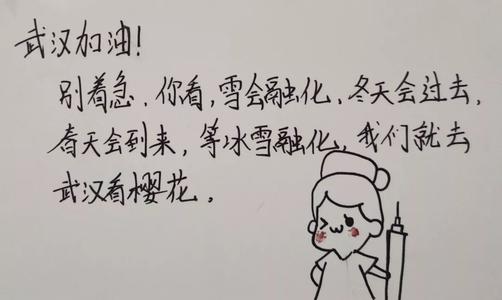 武汉加油！
别着急，你看，雪会融化，冬天会过去，
春天会到来，等冰雪融化，我们就去
武汉看樱花。